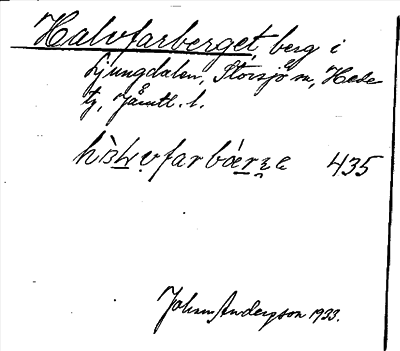 Halvfarberget, berg i
Ljungdalen, Storsjö sn, Hede
tg, Jämtl. l.
435
Johan Anderzson 1933.